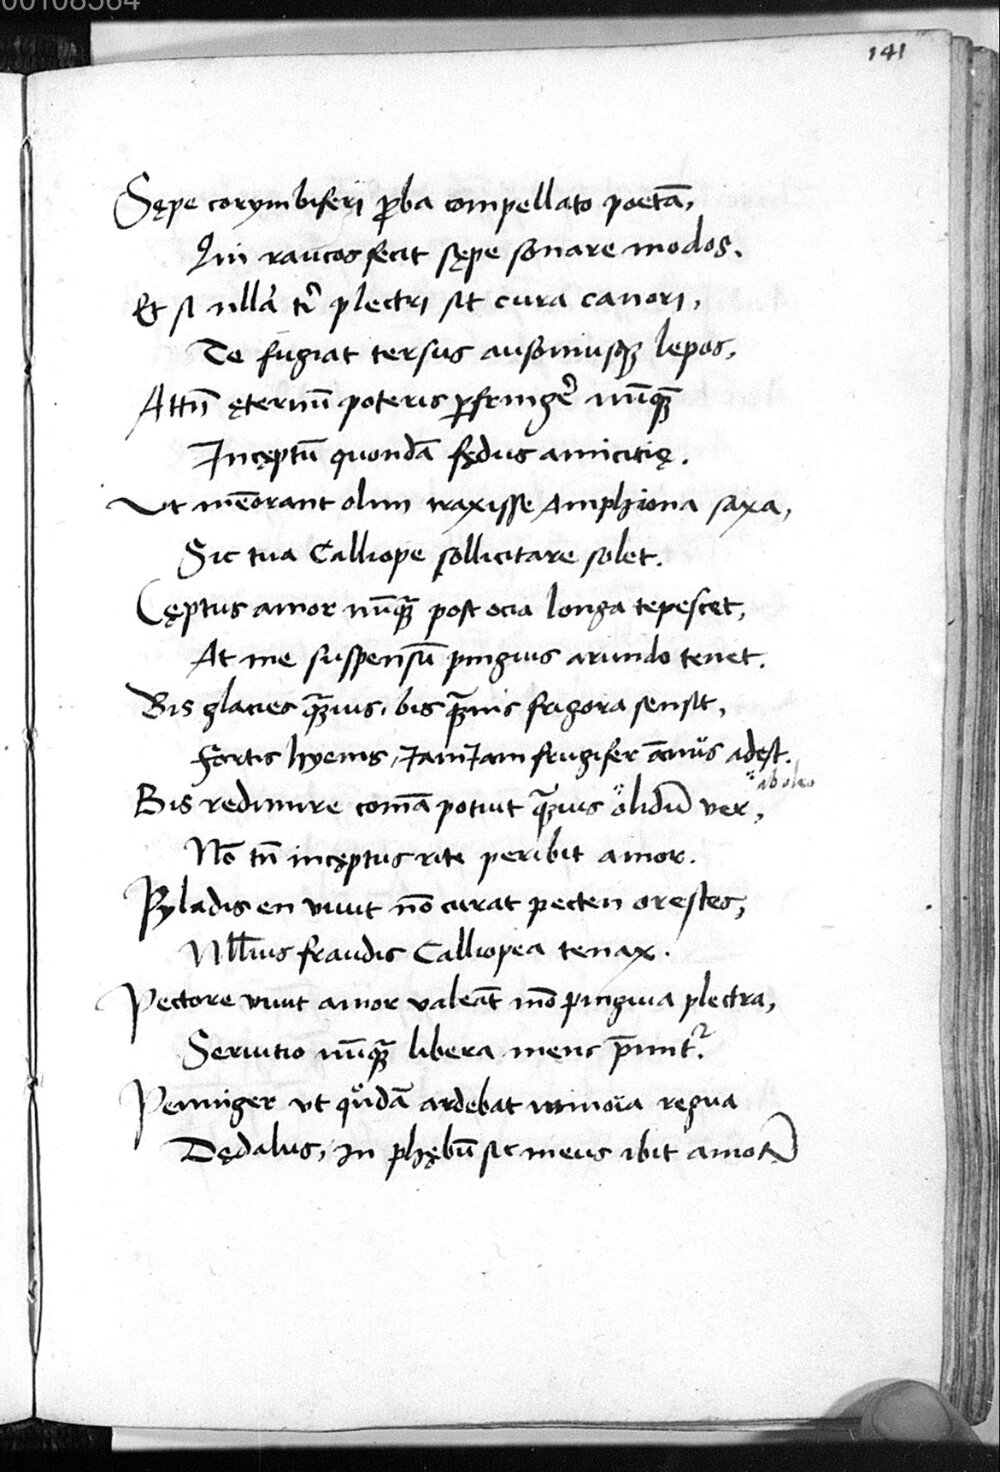 00108564
141
Sępe corymbiferi ꝓba compellato poetā,
Qui raucos fecit sępe sonare modos.
Et si nulla tr̃ plectri sit cura canori,
Te fugiat tersus ausoniusqꝫ lepos,
Attñ ęternũ poteris ꝑfringer̃ nũqꝫ̃
Incęptũ quondã fędus amicitię.
Ut mẽorant olim traxisse Amphiona saxa,
Sic tua Calliope sollicitare solet.
Cęptus amor nũqꝫ̃ post ocia longa tepescet,
At me suspensũ pinguis arundo tenet.
Bis glacies qꝫ̃uis, bis qꝫ̃uis frigora sensit,
Fortis hyems, IamIam frugifer ãnus adest.
ab oleo
Bis redimire comã potuit qꝫ̃uis olidũ ver,
Nõ tñ incęptus rite peribit amor.
Pyladis en viuit nõ curat pecten orestes,
Nłłius fraudis Calliopea tenax.
Pectore viuit amor valeãt mõ pinguia plectra,
Seruitio nũqꝫ̃ libera mens p̃mitᷣ.
Penniger vt quõdã ardebat minoia regna
Dędalus, In phębũ sic meus ibit amor